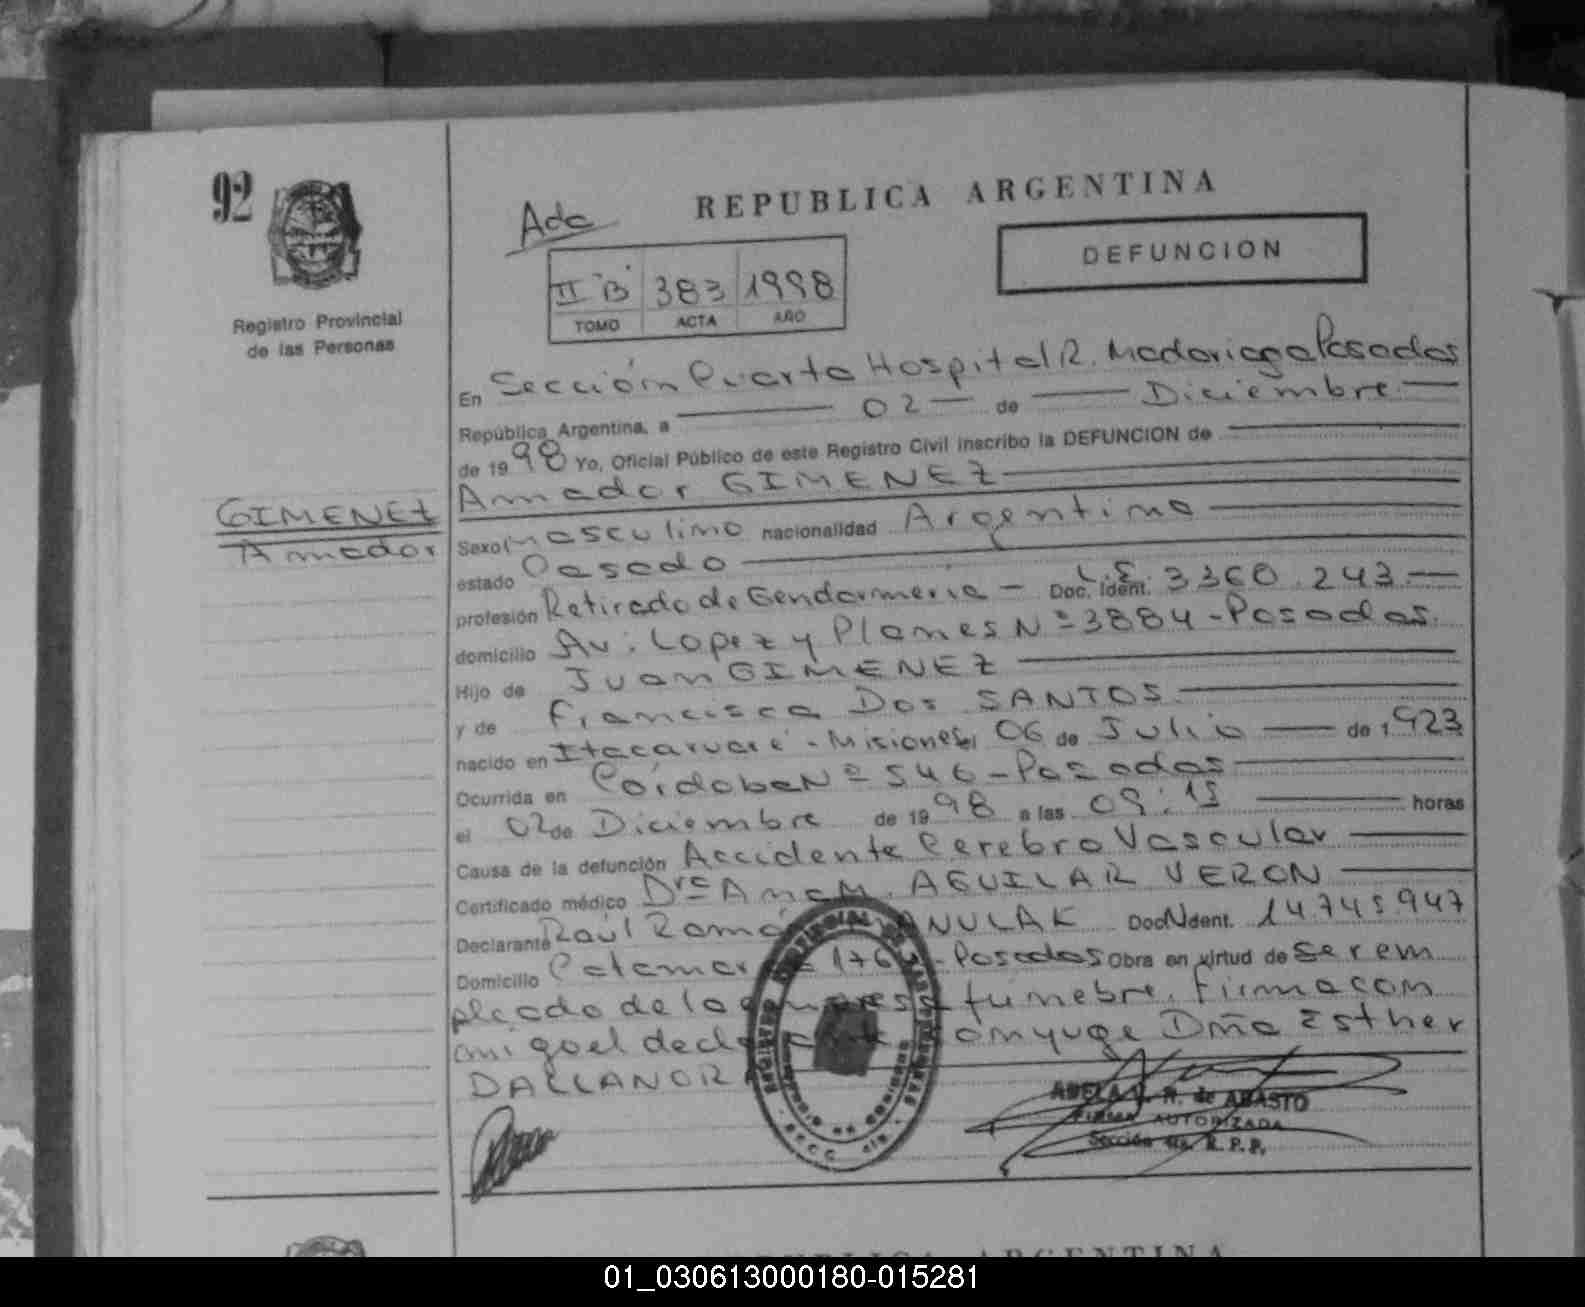 92
REPUBLICA ARGENTINA
DEFUNCION
II "B" 383 1998
TOMO ACTA AÑO
Registro Provincial
de las Personas
En Sección Cuarta Hospital R. Madariaga Posadas
República Argentina, a 02 de Diciembre
de 1998 Yo, Oficial Público de este Registro Civil inscribo la DEFUNCION de
GIMENEZ
Amador
Amador GIMENEZ
Sexo masculino nacionalidad Argentino
estado Casado
profesión Retirado de Gendarmeria - Doc. Ident. L.E. 3360.243
domicilio Av. Lopez y Planes Nº 3884 - Posadas.
Hijo de Juan GIMENEZ
y de Francisca Dos SANTOS.
nacido en Itacaruaré - Misiones el 06 de Julio de 1923
Ocurrida en Córdoba Nº 546 - Posadas
el 02 de Diciembre de 1998 a las 09:15 horas
Causa de la defunción Accidente Cerebro Vascular
Certificado médico Drª Ana M. AGUILAR VERON
Declarante Raúl Ramón Doc. Ident. 14.745.947
Domicilio - Posadas Obra en virtud de ser em
pleado de la empresa fúnebre, firma con
migo el conyuge Dña Esther
ADELA V. R. de ABASTO
FIRMA AUTORIZADA
Sección 4ta. R. P. P.
REPUBLICA ARGENTINA
01_030613000180-015281